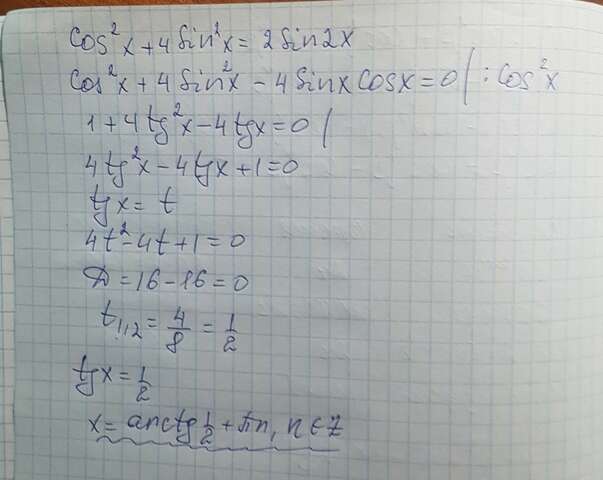 cos²x + 4 sin²x = 2 sin 2x
cos²x + 4 sin²x - 4 sin x cos x = 0 | : cos²x
1 + 4 tg²x - 4 tg x = 0 |
4 tg²x - 4 tg x + 1 = 0
tg x = t
4t² - 4t + 1 = 0
D = 16 - 16 = 0
t₁,₂ = 4/8 = 1/2
tg x = 1/2
x = arctg 1/2 + πn, n ∈ Z